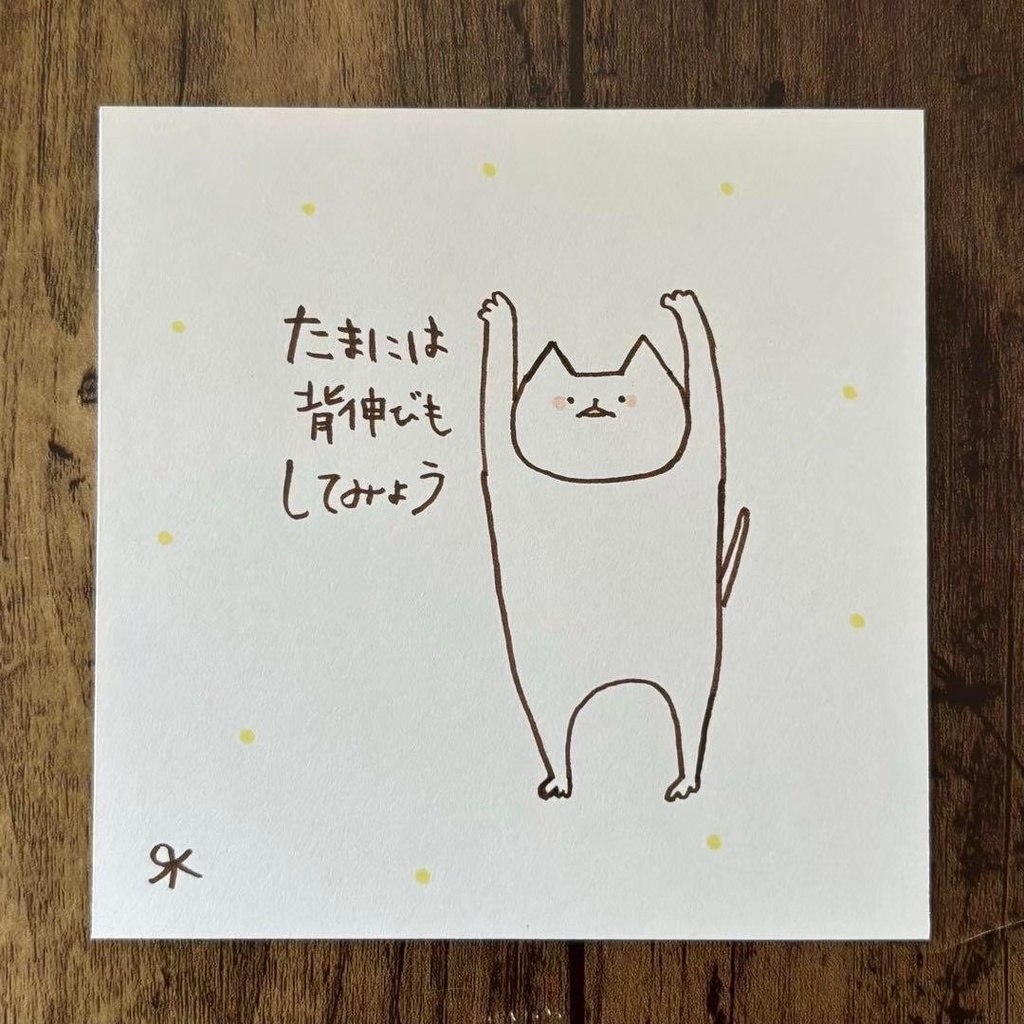 たまには
背伸びも
してみよう